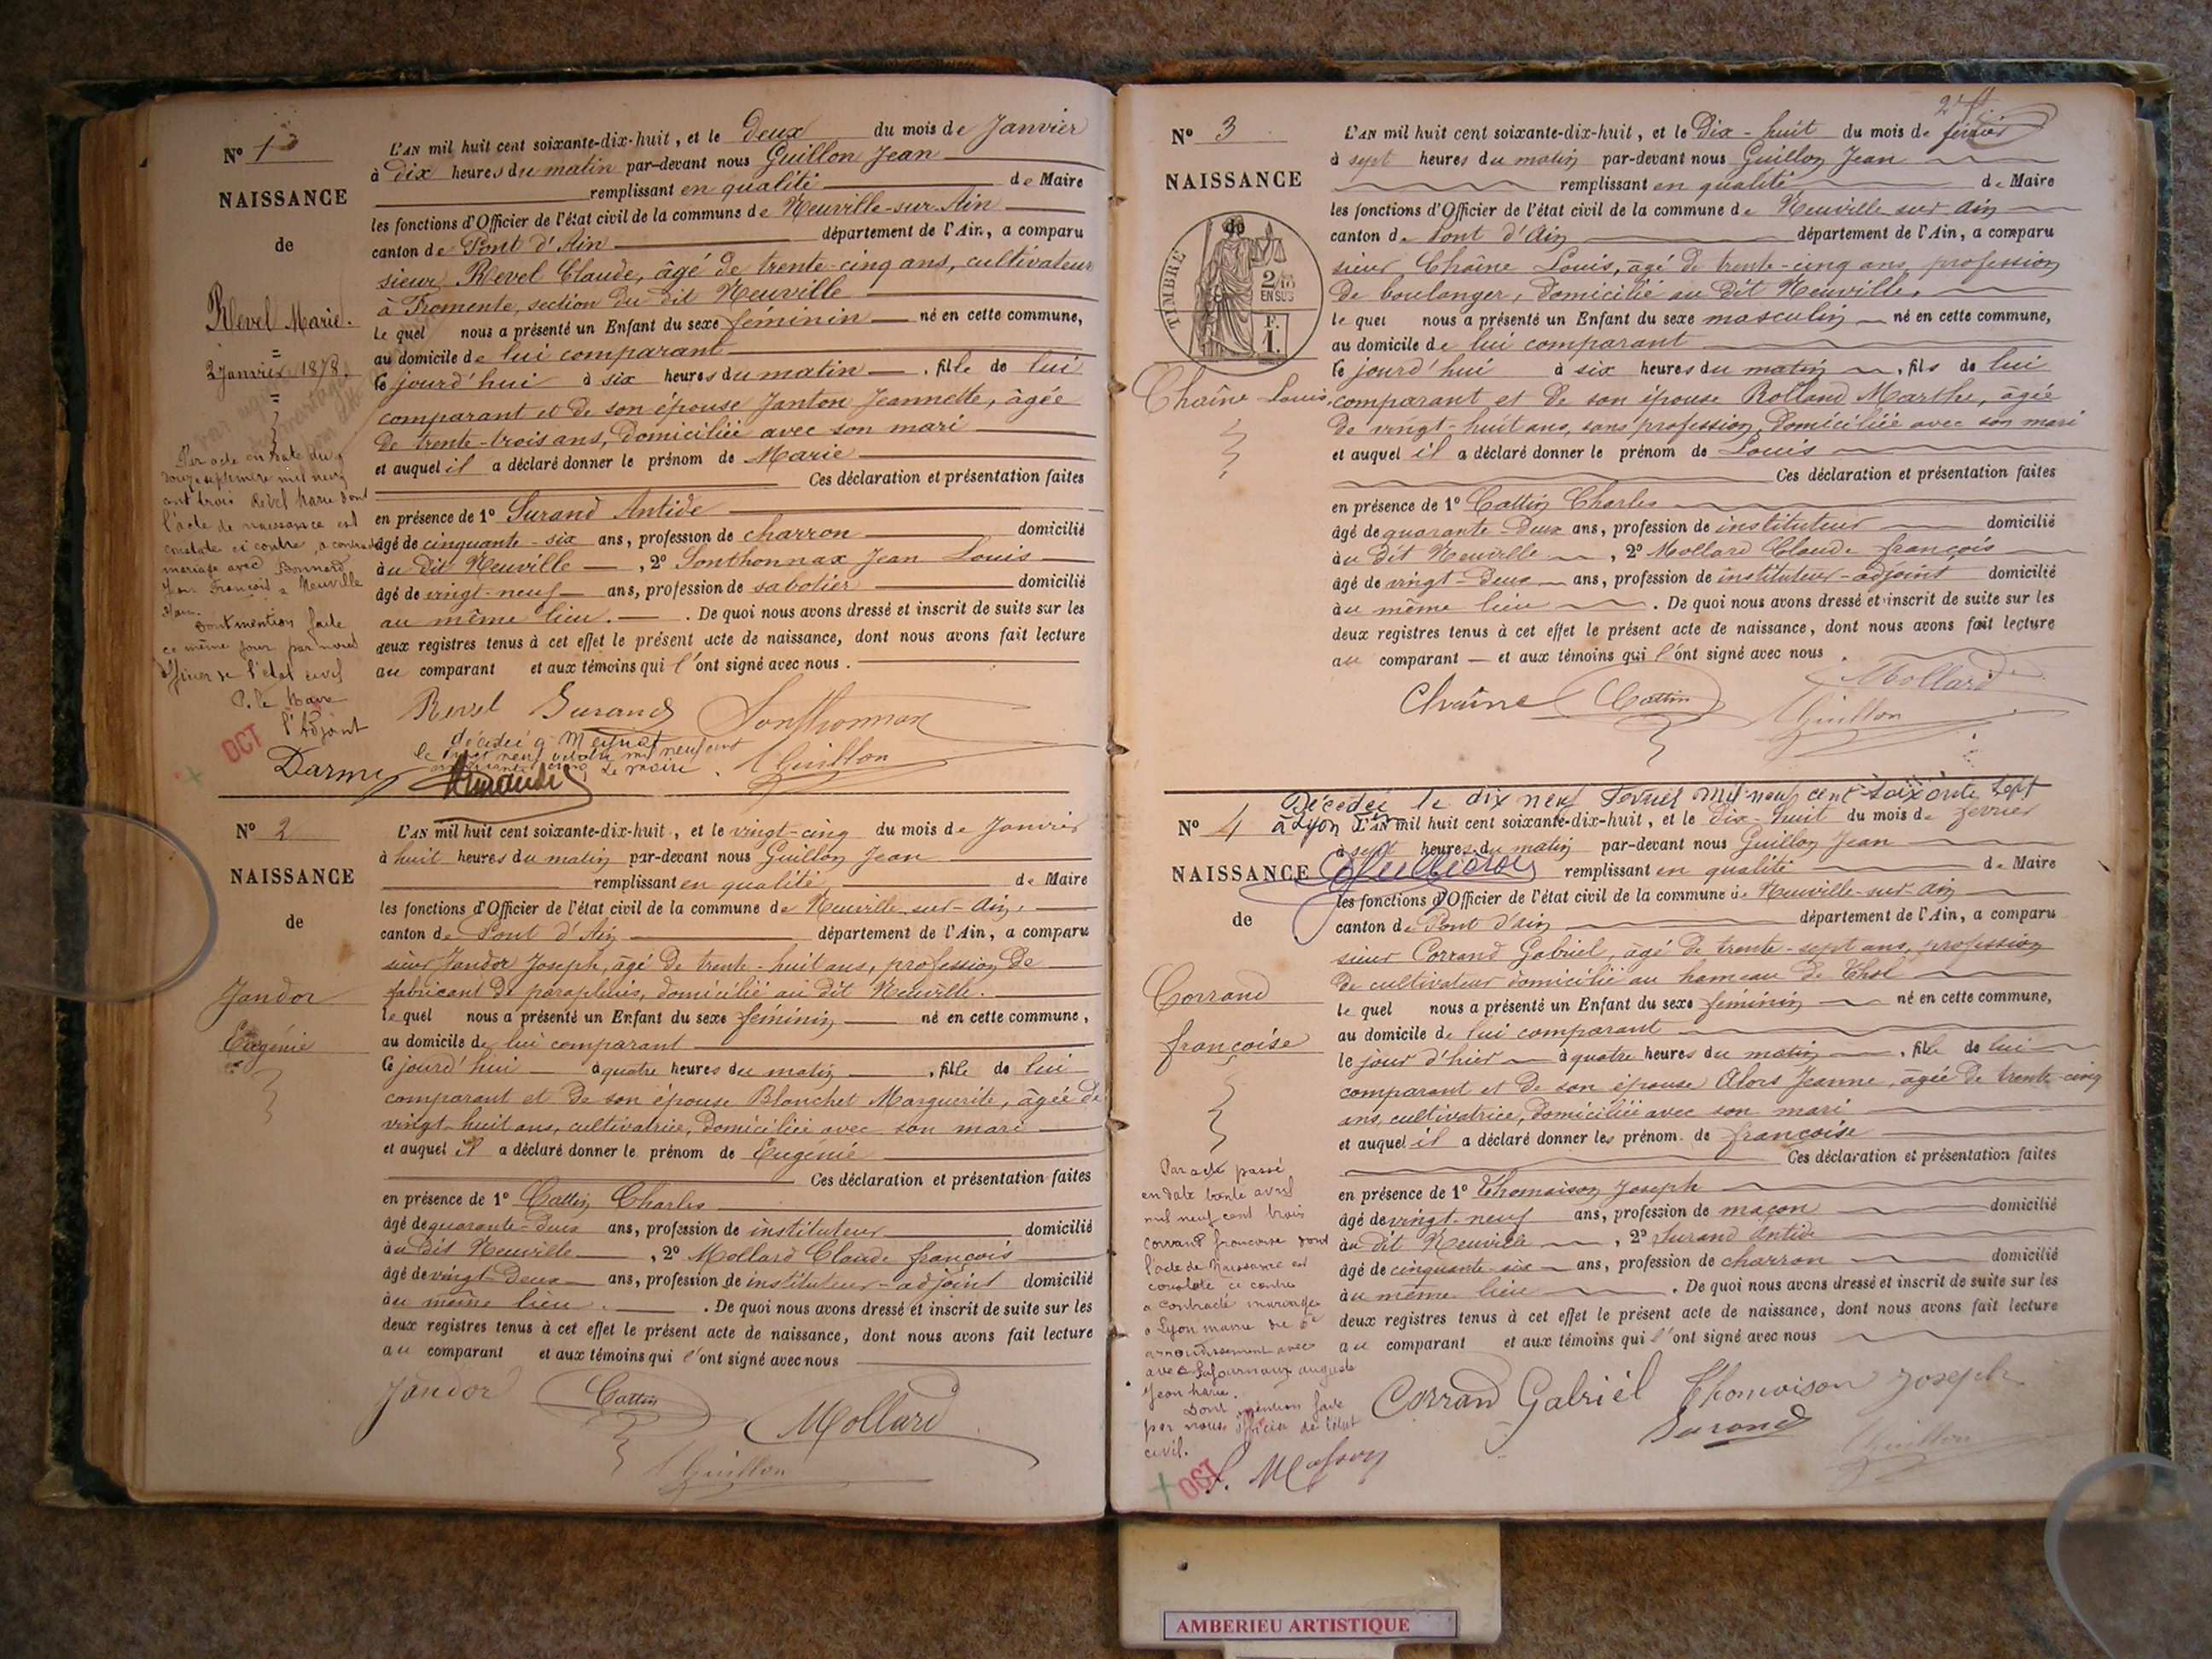 N° 1
NAISSANCE
de
Revel Marie.
2 Janvier 1878.
Par acte en date du
douze septembre mil neuf
cent trois Revel Marie dont
l'acte de naissance est
constaté ci contre, a contracté
mariage avec Bonnard
Jean François à Neuville
s/Ain.
Dont mention faite
ce même jour par nous
officier de l'état civil
P. le Maire
l'Adjoint
OCT
Darme
L'AN mil huit cent soixante-dix-huit, et le deux du mois de Janvier
à dix heures du matin par-devant nous Guillon Jean
remplissant en qualité de Maire
les fonctions d'Officier de l'état civil de la commune de Neuville-sur-Ain
canton de Pont d'Ain département de l'Ain, a comparu
sieur Revel Claude, âgé de trente-cinq ans, cultivateur
à Fromente, section du dit Neuville
le quel nous a présenté un Enfant du sexe féminin né en cette commune,
au domicile de lui comparant
ce jourd'hui à six heures du matin, fille de lui
comparant et de son épouse Janton Jeannette, âgée
de trente-trois ans, domiciliée avec son mari
et auquel il a déclaré donner le prénom de Marie
Ces déclaration et présentation faites
en présence de 1° Surand Antide
âgé de cinquante-six ans, profession de charron domicilié
au dit Neuville, 2° Sonthonnax Jean Louis
âgé de vingt-neuf ans, profession de sabotier domicilié
au même lieu. De quoi nous avons dressé et inscrit de suite sur les
deux registres tenus à cet effet le présent acte de naissance, dont nous avons fait lecture
au comparant et aux témoins qui l'ont signé avec nous.
Revel Surand Sonthonnax
décédée à
le vingt neuf mil neuf cent
cinquante cinq Le maire. Guillon
N° 2
NAISSANCE
de
Jandor
Eugénie
L'AN mil huit cent soixante-dix-huit, et le vingt-cinq du mois de Janvier
à huit heures du matin par-devant nous Guillon Jean
remplissant en qualité de Maire
les fonctions d'Officier de l'état civil de la commune de Neuville-sur-Ain,
canton de Pont d'Ain département de l'Ain, a comparu
sieur Jandor Joseph, âgé de trente-huit ans, profession de
fabricant de parapluies, domicilié au dit Neuville.
le quel nous a présenté un Enfant du sexe féminin né en cette commune,
au domicile de lui comparant
ce jourd'hui à quatre heures du matin, fille de lui
comparant et de son épouse Blanchet Marguerite, âgée de
vingt-huit ans, cultivatrice, domiciliée avec son mari
et auquel il a déclaré donner le prénom de Eugénie
Ces déclaration et présentation faites
en présence de 1° Cattin Charles
âgé de quarante-deux ans, profession de instituteur domicilié
au dit Neuville, 2° Mollard Claude françois
âgé de vingt-deux ans, profession de instituteur-adjoint domicilié
au même lieu. De quoi nous avons dressé et inscrit de suite sur les
deux registres tenus à cet effet le présent acte de naissance, dont nous avons fait lecture
au comparant et aux témoins qui l'ont signé avec nous
Jandor Cattin
Mollard
Guillon
N° 3
NAISSANCE
de
TIMBRE
2/10
EN SUS
F.
1.
Chaîne Louis,
L'AN mil huit cent soixante-dix-huit, et le Dix-huit du mois de février
à sept heures du matin par-devant nous Guillon Jean
remplissant en qualité de Maire
les fonctions d'Officier de l'état civil de la commune de Neuville sur Ain
canton de Pont d'Ain département de l'Ain, a comparu
sieur Chaîne Louis, âgé de trente-cinq ans, profession
de boulanger, domicilié au dit Neuville.
le quel nous a présenté un Enfant du sexe masculin né en cette commune,
au domicile de lui comparant
ce jourd'hui à six heures du matin, fils de lui
comparant et de son épouse Rolland Marthe, âgée
de vingt-huit ans, sans profession, domiciliée avec son mari
et auquel il a déclaré donner le prénom de Louis
Ces déclaration et présentation faites
en présence de 1° Cattin Charles
âgé de quarante-deux ans, profession de instituteur domicilié
au dit Neuville, 2° Mollard Claude françois
âgé de vingt-deux ans, profession de instituteur-adjoint domicilié
au même lieu. De quoi nous avons dressé et inscrit de suite sur les
deux registres tenus à cet effet le présent acte de naissance, dont nous avons fait lecture
au comparant et aux témoins qui l'ont signé avec nous.
Chaîne Cattin Mollard
Guillon
Décédée le dix neuf février mil neuf cent soixante sept
à Lyon
N° 4
NAISSANCE
de
Corrand
françoise
Par acte passé
en date trente avril
mil neuf cent trois
Corrand françoise dont
l'acte de Naissance est
constaté ci contre
a contracté mariage
à Lyon mairie du
arrondissement avec
avec auguste
Jean Marie.
Dont mention faite
par nous officier de l'état
civil.
OCT
L'AN mil huit cent soixante-dix-huit, et le Dix-huit du mois de février
à sept heures du matin par-devant nous Guillon Jean
remplissant en qualité de Maire
les fonctions d'Officier de l'état civil de la commune de Neuville-sur Ain
canton de Pont d'Ain département de l'Ain, a comparu
sieur Corrand Gabriel, âgé de trente-sept ans, profession
de cultivateur domicilié au hameau de Thol
le quel nous a présenté un Enfant du sexe féminin né en cette commune,
au domicile de lui comparant
le jour d'hier à quatre heures du matin, fille de lui
comparant et de son épouse Alors Jeanne, âgée de trente-cinq
ans, cultivatrice, domiciliée avec son mari
et auquel il a déclaré donner les prénom de françoise
Ces déclaration et présentation faites
en présence de 1° Thomaison Joseph
âgé de vingt-neuf ans, profession de maçon domicilié
au dit Neuville, 2° Surand Antide
âgé de cinquante-six ans, profession de charron domicilié
au même lieu. De quoi nous avons dressé et inscrit de suite sur les
deux registres tenus à cet effet le présent acte de naissance, dont nous avons fait lecture
au comparant et aux témoins qui l'ont signé avec nous
Corrand Gabriel Thomaison Joseph
Surand
Guillon
AMBERIEU ARTISTIQUE